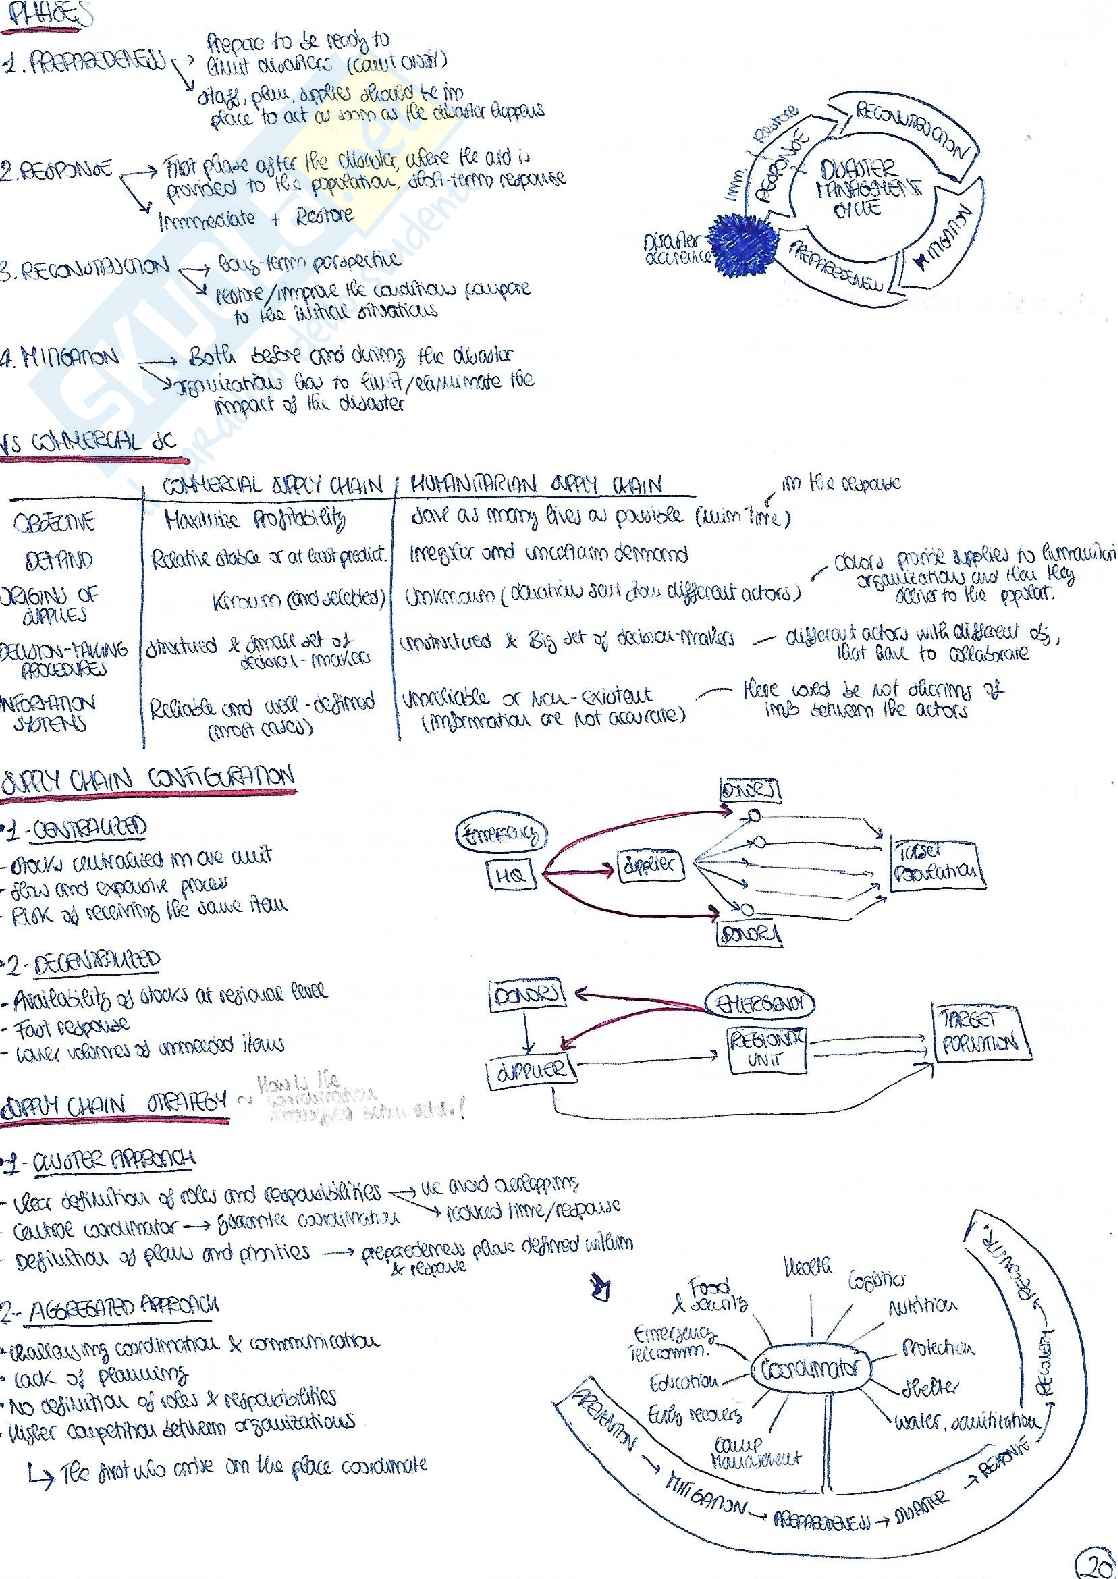 PHASES
1. PREPAREDENESS
Prepare to be ready to
limit disasters (
Staff, plan, supplies should be in
place to act as soon as the disaster happens
2. RESPONSE
First phase after the disaster, where the aid is
provided to the population, short-term response
Immediate + Restore
3. RECONSTRUCTION
long-term perspective
restore/improve the conditions compare
to the initial situations
4. MITIGATION
Both before and during the disaster
organizations has to limit/eliminate the
impact of the disaster
Imm
Restore
RESPONSE
RECONSTRUCTION
MITIGATION
PREPAREDENESS
DISASTER
MANAGEMENT
CYCLE
Disaster
occurence
VS COMMERCIAL SC
COMMERCIAL SUPPLY CHAIN
HUMANITARIAN SUPPLY CHAIN
in the response
OBJECTIVE
Maximize Profitability
Save as many lives as possible (min time)
DEMAND
Relative stable or at least predict.
Irregular and uncertain demand
ORIGINS OF
SUPPLIES
Known (and selected)
Unknown (donations sent from different actors)
donors provide supplies to humanitari
organizations and then they
deliver to the populat.
DECISION-TAKING
PROCEDURES
Structured & small set of
decision-makers
Unstructured & Big set of decision-makers
different actors with different obj,
that have to collaborate
INFORMATION
SYSTEMS
Reliable and well-defined
(most cases)
Unreliable or Non-existent
(information are not accurate)
there could be not sharing of
info between the actors
SUPPLY CHAIN CONFIGURATION
1- CENTRALIZED
- Stocks centralized in one unit
- Slow and expensive process
- Risk of receiving the same item
Emergency
HQ
Supplier
DONORS
DONORS
TARGET
POPULATION
2- DECENTRALIZED
- Availability of stocks at regional level
- Fast response
- Lower volumes of unneeded items
DONORS
EMERGENCY
SUPPLIER
REGIONAL
UNIT
TARGET
POPULATION
SUPPLY CHAIN STRATEGY ~ How is the
coordination
1- CLUSTER APPROACH
- Clear definition of roles and responsibilities → we avoid overlapping
→ reduced time/response
- Central coordinator → guarantee coordination
- Definition of plans and priorities → preparedeness phase defined within
& response
2- AGGREGATED APPROACH
Challenging coordination & communication
Lack of planning
No definition of roles & responsibilities
Higher competition between organizations
↳ The first who arrive on the place coordinate
Coordinator
Health
Logistics
Nutrition
Protection
Shelter
Water, sanitization
Camp
Management
Early recovery
Education
Emergency
Telecomm.
Food
& security
PREVENTION → MITIGATION → PREPAREDENESS → DISASTER → RESPONSE → RECOVERY → RECONSTR.
20